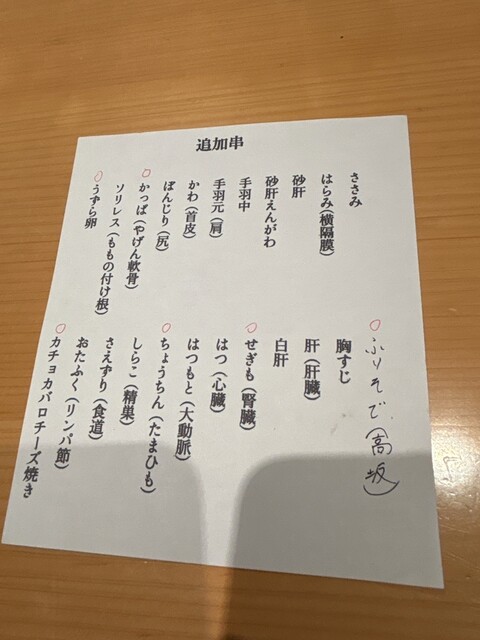 追加串
ささみ
はらみ(横隔膜)
砂肝
砂肝えんがわ
手羽中
手羽元(肩)
かわ(首皮)
ぼんじり(尻)
かっぱ(やげん軟骨)
ソリレス(ももの付け根)
うずら卵
ふりそで(高坂)
胸すじ
肝(肝臓)
白肝
せぎも(腎臓)
はつ(心臓)
はつもと(大動脈)
ちょうちん(たまひも)
しらこ(精巣)
さえずり(食道)
おたふく(リンパ節)
カチョカバロチーズ焼き